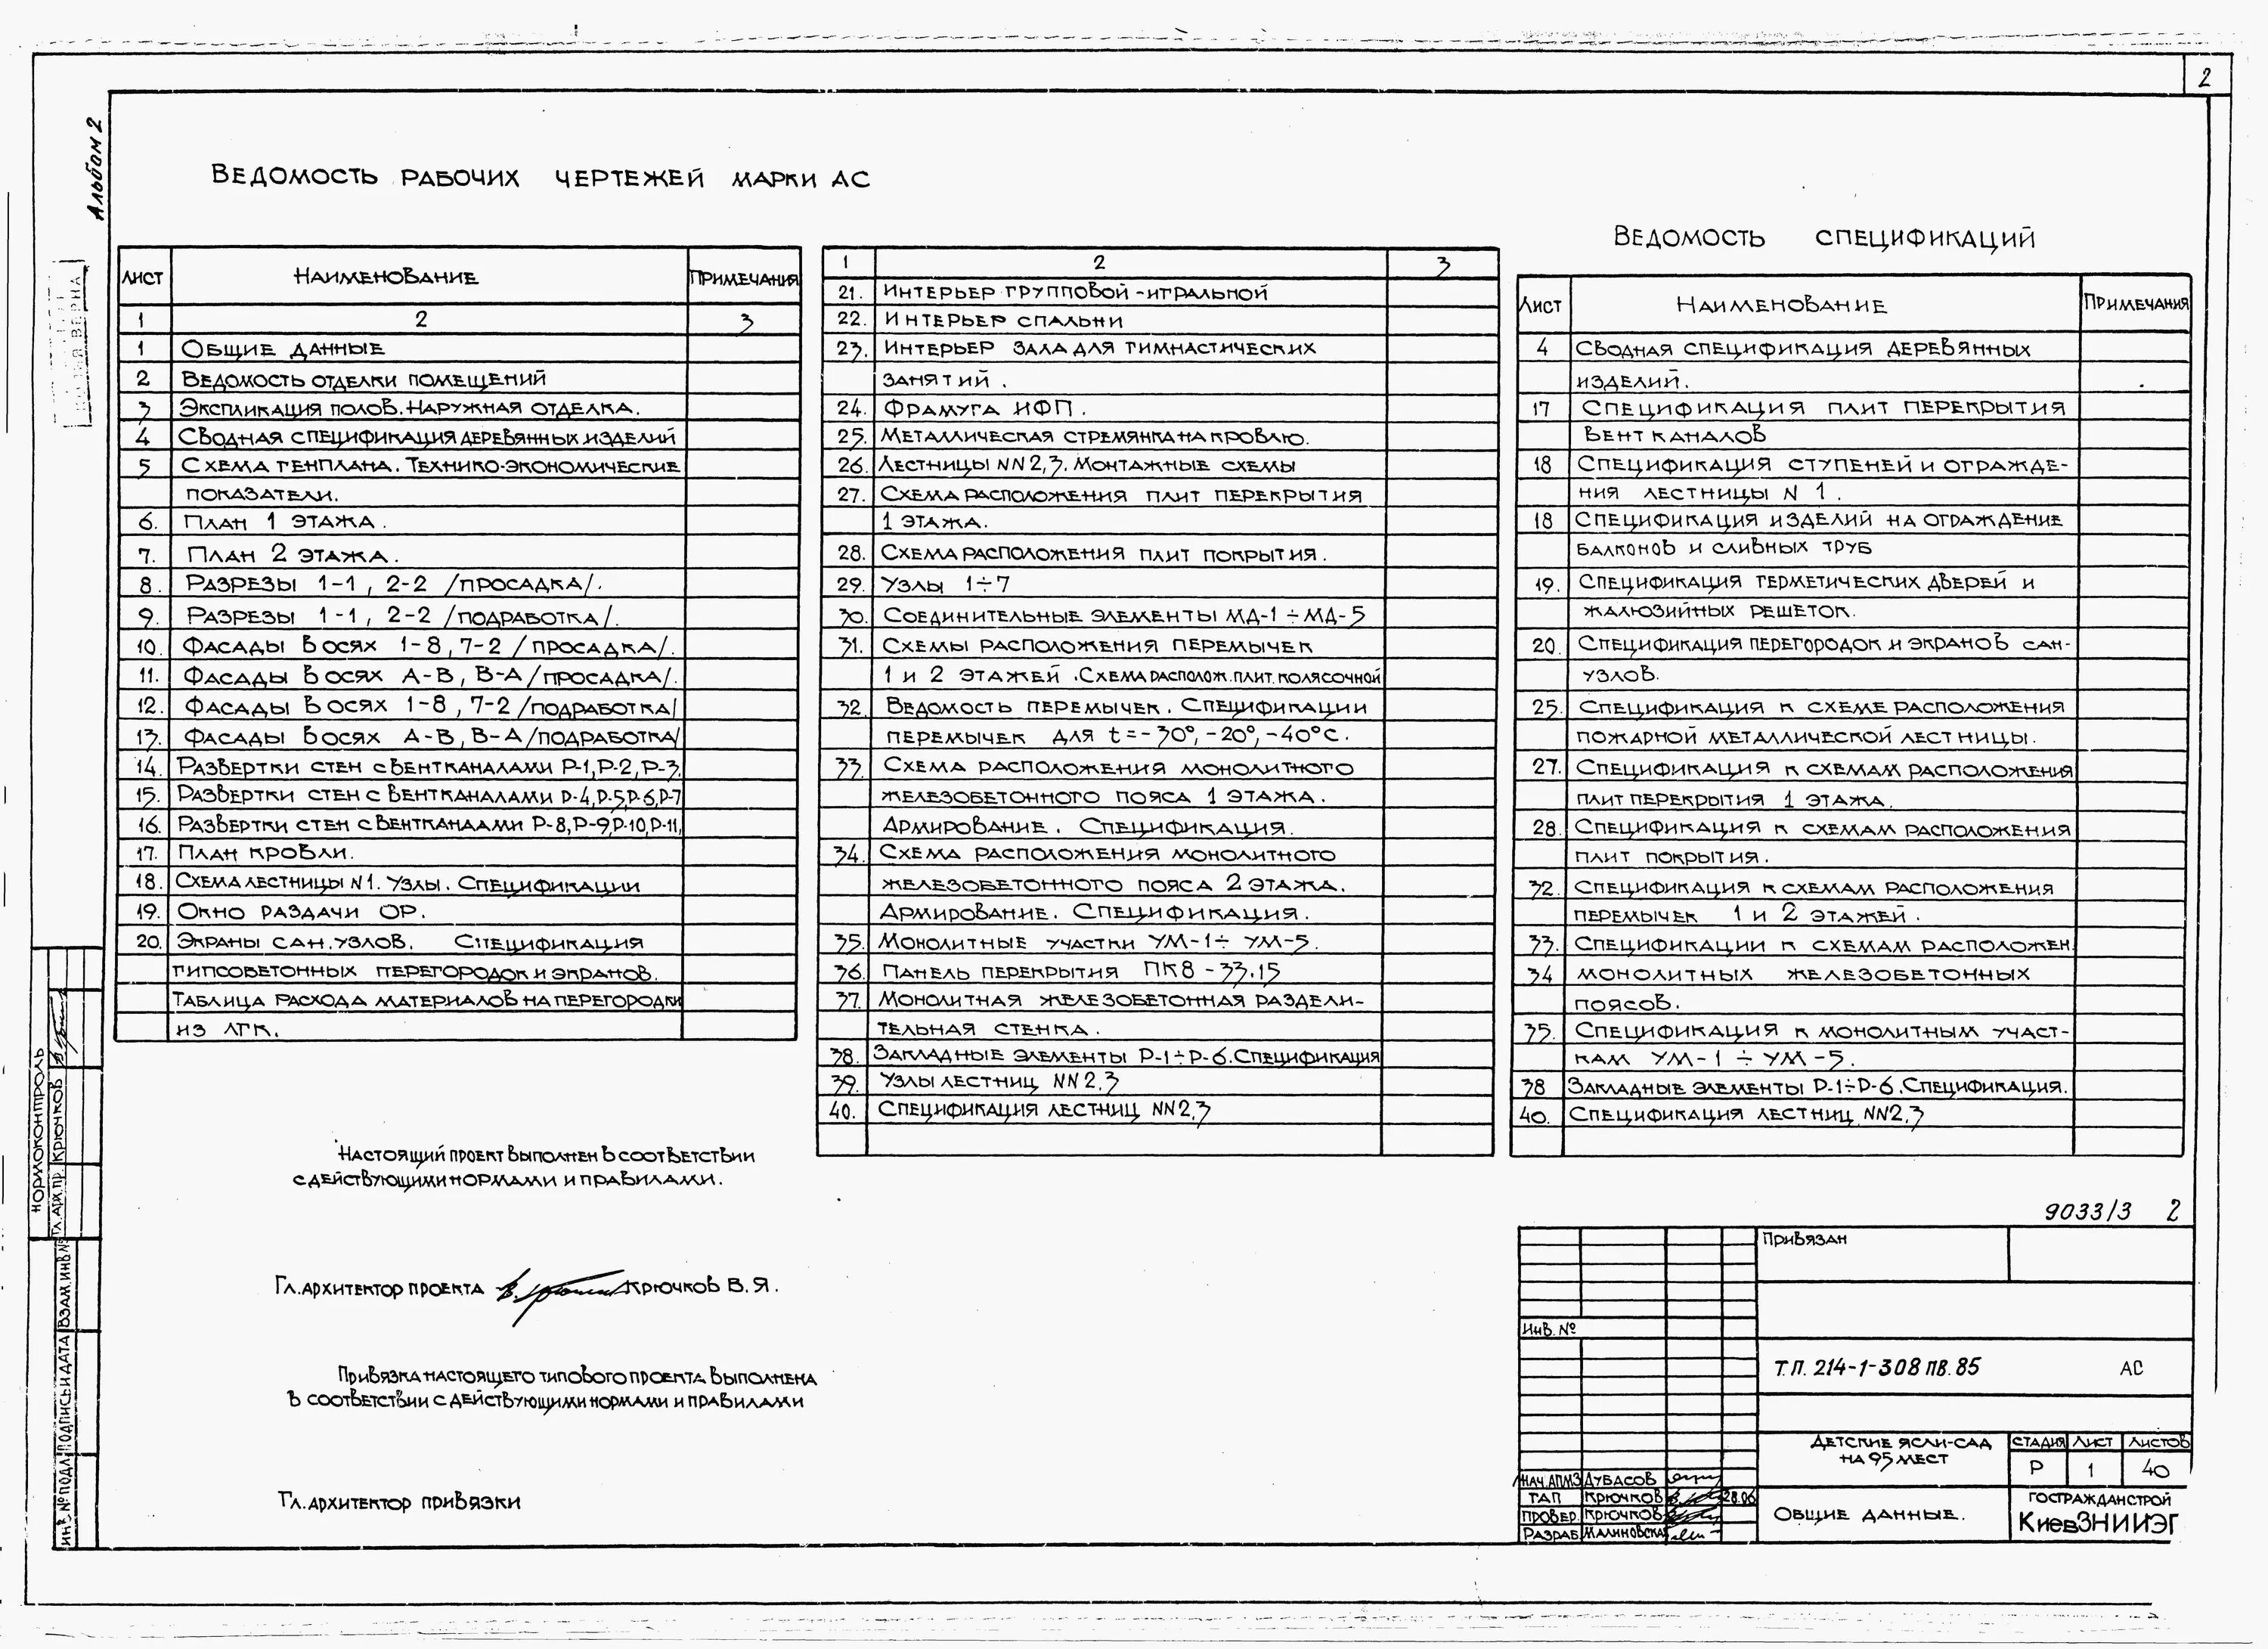 2
Альбом 2
Ведомость рабочих чертежей марки АС
Лист Наименование Примечания
1 2 3
1 Общие данные
2 Ведомость отделки помещений
3 Экспликация полов. Наружная отделка.
4 Сводная спецификация деревянных изделий
5 Схема генплана. Технико-экономические
показатели.
6. План 1 этажа.
7. План 2 этажа.
8. Разрезы 1-1, 2-2 /просадка/.
9. Разрезы 1-1, 2-2 /подработка/.
10. Фасады в осях 1-8, 7-2 /просадка/.
11. Фасады в осях А-В, В-А /просадка/.
12. Фасады в осях 1-8, 7-2 /подработка/
13. Фасады в осях А-В, В-А /подработка/
14. Развертки стен с вентканалами Р-1, Р-2, Р-3.
15. Развертки стен с вентканалами Р-4, Р-5, Р-6, Р-7
16. Развертки стен с вентканалами Р-8, Р-9, Р-10, Р-11.
17. План кровли.
18. Схема лестницы N1. Узлы. Спецификации
19. Окно раздачи ОР.
20. Экраны сан. узлов. Спецификация
гипсобетонных перегородок и экранов.
Таблица расхода материалов на перегородки
из ЛГК.
1 2 3
21. Интерьер групповой-игральной
22. Интерьер спальни
23. Интерьер зала для гимнастических
занятий.
24. Фрамуга ИФП.
25. Металлическая стремянка на кровлю.
26. Лестницы NN 2, 3. Монтажные схемы
27. Схема расположения плит перекрытия
1 этажа.
28. Схема расположения плит покрытия.
29. Узлы 1÷7
30. Соединительные элементы МД-1÷МД-5
31. Схемы расположения перемычек
1 и 2 этажей. Схема располож. плит. колясочной
32. Ведомость перемычек. Спецификации
перемычек для t=-30°, -20°, -40°С.
33. Схема расположения монолитного
железобетонного пояса 1 этажа.
Армирование. Спецификация.
34. Схема расположения монолитного
железобетонного пояса 2 этажа.
Армирование. Спецификация.
35. Монолитные участки УМ-1÷УМ-5.
36. Панель перекрытия ПК8-33.15
37. Монолитная железобетонная раздели-
тельная стенка.
38. Закладные элементы Р-1÷Р-6. Спецификация
39. Узлы лестниц NN 2,3
40. Спецификация лестниц NN 2,3
Ведомость спецификаций
Лист Наименование Примечания
4 Сводная спецификация деревянных
изделий.
17 Спецификация плит перекрытия
вентканалов
18 Спецификация ступеней и огражде-
ния лестницы N 1.
18 Спецификация изделий на ограждение
балконов и сливных труб
19. Спецификация герметических дверей и
жалюзийных решеток.
20. Спецификация перегородок и экранов сан-
узлов.
25. Спецификация к схеме расположения
пожарной металлической лестницы.
27. Спецификация к схемам расположения
плит перекрытия 1 этажа.
28. Спецификация к схемам расположения
плит покрытия.
32. Спецификация к схемам расположения
перемычек 1 и 2 этажей.
33. Спецификации к схемам расположен.
34 монолитных железобетонных
поясов.
35. Спецификация к монолитным участ-
кам УМ-1÷УМ-5.
38 Закладные элементы Р-1÷Р-6. Спецификация.
40. Спецификация лестниц NN 2,3
Настоящий проект выполнен в соответствии
с действующими нормами и правилами.
Гл. архитектор проекта Крючков В.Я.
Привязка настоящего типового проекта выполнена
в соответствии с действующими нормами и правилами
Гл. архитектор привязки
9033/3 2
Привязан
Инв. №
Т.П. 214-1-308 пв. 85 АС
Детские ясли-сад
на 95 мест
Стадия Лист Листов
Р 1 40
Нач. АПМ3 Дубасов
ГАП Крючков 28.06
Провер. Крючков
Разраб. Малиновская
Общие данные.
Госгражданстрой
КиевЗНИИЭП
Нормоконтроль
Гл. арх. пр. Крючков
Взам. инв. №
Подпись и дата
Инв. № подл.